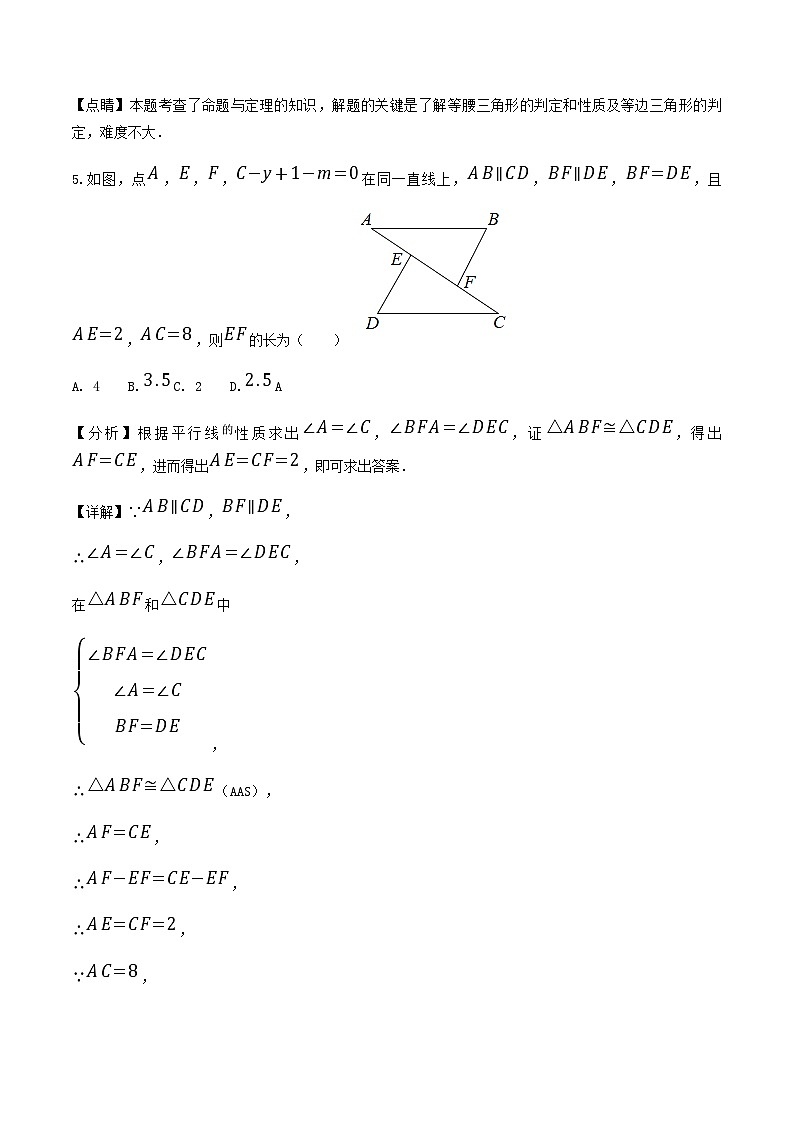 【点睛】本题考查了命题与定理的知识，解题的关键是了解等腰三角形的判定和性质及等边三角形的判
定，难度不大．
5.如图，点A，E，F，C−y+1−m=0在同一直线上，AB∥CD，BF∥DE，BF=DE，且
A
B
E
F
D
C
AE=2，AC=8，则EF的长为（　　）
A. 4　　B.3.5C. 2　　D.2.5A
【分析】根据平行线的性质求出∠A=∠C，∠BFA=∠DEC，证△ABF≅△CDE，得出
AF=CE，进而得出AE=CF=2，即可求出答案．
【详解】∵AB∥CD，BF∥DE，
∴∠A=∠C，∠BFA=∠DEC，
在△ABF和△CDE中
∠BFA=∠DEC
∠A=∠C
BF=DE，
∴△ABF≅△CDE（AAS），
∴AF=CE，
∴AF−EF=CE−EF，
∴AE=CF=2，
∵AC=8，